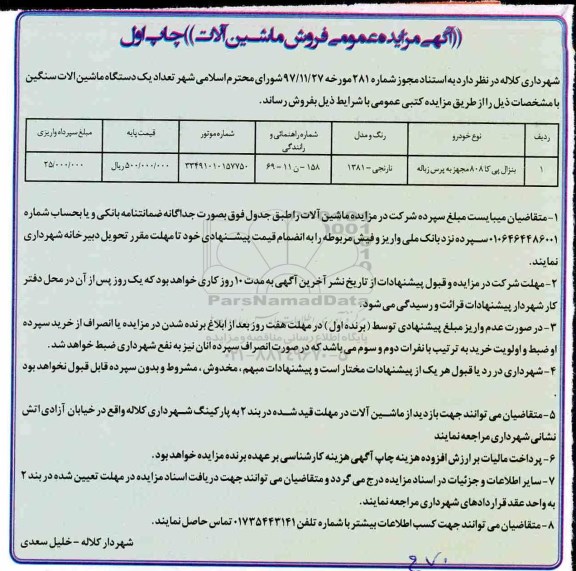 ((آگهی مزایده عمومی فروش ماشین آلات))چاپ اول
شهرداری کلاله در نظر دارد به استناد مجوز شماره ۲۸۱ مورخه ۹۷/۱۱/۲۷ شورای محترم اسلامی شهر تعداد یک دستگاه ماشین الات سنگین
با مشخصات ذیل را از طریق مزایده کتبی عمومی با شرایط ذیل بفروش رساند.
ردیف نوع خودرو رنگ و مدل شماره راهنمائی و رانندگی شماره موتور قیمت پایه مبلغ سپرده واریزی
۱ بنزال پی کا ۸۰۸ مجهز به پرس زباله نارنجی - ۱۳۸۱ ۱۵۸ - ن ۱۱ - ۶۹ ۳۳۴۹۱۰۱۰۱۵۷۷۵۰ ۵۰۰/۰۰۰/۰۰۰ ریال ۲۵/۰۰۰/۰۰۰
۱- متقاضیان میبایست مبلغ سپرده شرکت در مزایده ماشین آلات را طبق جدول فوق بصورت جداگانه ضمانتنامه بانکی و یا بحساب شماره
۰۱۰۶۴۶۴۴۸۶۰۰۱ سپرده نزد بانک ملی واریز و فیش مربوطه را به انضمام قیمت پیشنهادی خود تا مهلت مقرر تحویل دبیرخانه شهرداری
نمایند.
۲- مهلت شرکت در مزایده و قبول پیشنهادات از تاریخ نشر آخرین آگهی به مدت ۱۰ روز کاری خواهد بود که یک روز پس از آن در محل دفتر
کار شهردار پیشنهادات قرائت و رسیدگی می شود.
ParsNamadData
پایگاه اطلاع رسانی مناقصه و مزایده
۰۲۱-۸۸۳۴۹۶۷۰-۵
۳- در صورت عدم واریز مبلغ پیشنهادی توسط (برنده اول) در مهلت هفت روز بعد از ابلاغ برنده شدن در مزایده یا انصراف از خرید سپرده
او ضبط و اولویت خرید به ترتیب با نفرات دوم و سوم می باشد که در صورت انصراف سپرده انان نیز به نفع شهرداری ضبط خواهد شد.
۴- شهرداری در رد یا قبول هر یک از پیشنهادات مختار است و پیشنهادات مبهم، مخدوش، مشروط و بدون سپرده قابل قبول نخواهد بود
.
۵- متقاضیان می توانند جهت بازدید از ماشین آلات در مهلت قید شده در بند ۲ به پارکینگ شهرداری کلاله واقع در خیابان آزادی اتش
نشانی شهرداری مراجعه نمایند
۶- پرداخت مالیات بر ارزش افزوده هزینه چاپ آگهی هزینه کارشناسی بر عهده برنده مزایده خواهد بود.
۷- سایر اطلاعات و جزئیات در اسناد مزایده درج می گردد و متقاضیان می توانند جهت دریافت اسناد مزایده در مهلت تعیین شده در بند ۲
به واحد عقد قراردادهای شهرداری مراجعه نمایند.
۸- متقاضیان می توانند جهت کسب اطلاعات بیشتر با شماره تلفن ۰۱۷۳۵۴۴۳۱۴۱ تماس حاصل نمایند.
شهردار کلاله - خلیل سعدی